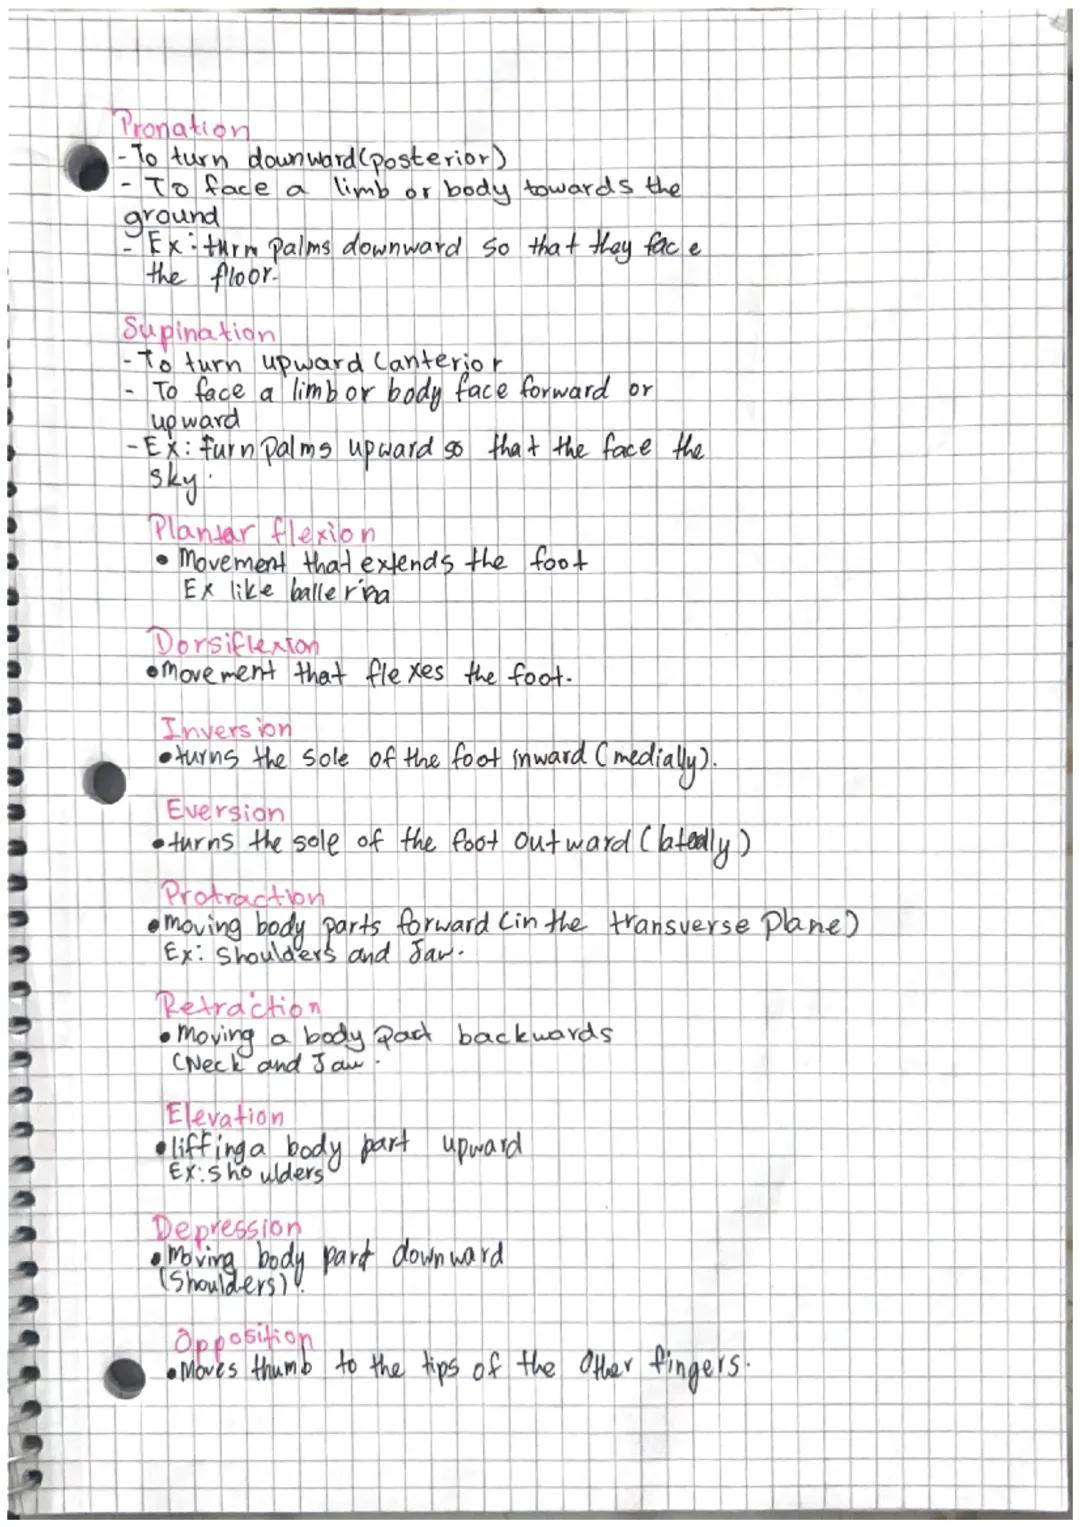 Pronation
- To turn downward (posterior)
- To face a limb or body towards the
ground
- Ex: turn palms downward so that they face
the floor.
Supination
- To turn upward (anterior
- To face a limb or body face forward or
upward
- Ex: turn palms upward so that the face the
sky.
Plantar flexion
• Movement that extends the foot
Ex like ballerina
Dorsiflexion
• Movement that flexes the foot.
Inversion
• turns the sole of the foot inward (medially).
Eversion
• turns the sole of the foot outward (lateally)
Protraction
• Moving body parts forward (in the transverse plane)
Ex: Shoulders and Jaw.
Retraction
• Moving a body part backwards
(Neck and Jaw.
Elevation
• liffing a body part upward
Ex: shoulders
Depression
• Moving body part downward
(Shoulders).
Opposition
• Moves thumb to the tips of the other fingers.